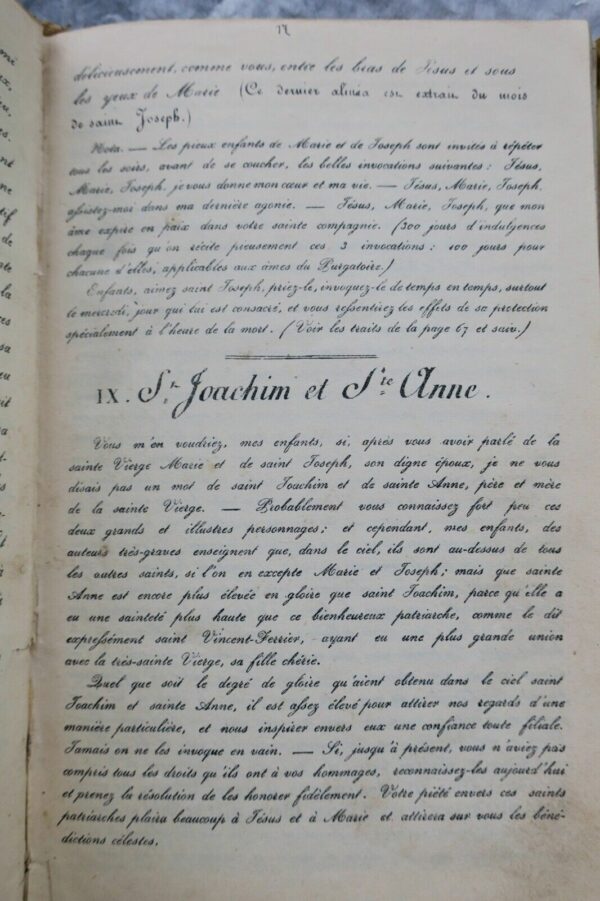 17
délicieusement, comme vous, entre les bras de Jésus et sous
les yeux de Marie (Ce dernier alinéa est extrait du mois
de saint Joseph.)
Nota. — Les pieux enfants de Marie et de Joseph sont invités à répéter
tous les soirs, avant de se coucher, les belles invocations suivantes : Jésus,
Marie, Joseph, je vous donne mon cœur et ma vie. — Jésus, Marie, Joseph,
assistez-moi dans ma dernière agonie. — Jésus, Marie, Joseph, que mon
âme expire en paix dans votre sainte compagnie. (300 jours d'indulgences
chaque fois qu'on récite pieusement ces 3 invocations : 100 jours pour
chacune d'elles, applicables aux âmes du Purgatoire.)
Enfants, aimez saint Joseph, priez-le, invoquez-le de temps en temps, surtout
le mercredi, jour qui lui est consacré, et vous ressentirez les effets de sa protection
spécialement à l'heure de la mort. (Voir les traits de la page 67 et suiv.)
IX. St. Joachim et Ste. Anne.
Vous m'en voudriez, mes enfants, si, après vous avoir parlé de la
sainte Vierge Marie et de saint Joseph, son digne époux, je ne vous
disais pas un mot de saint Joachim et de sainte Anne, père et mère
de la sainte Vierge. — Probablement vous connaissez fort peu ces
deux grands et illustres personnages ; et cependant, mes enfants, des
auteurs très-graves enseignent que, dans le ciel, ils sont au-dessus de tous
les autres saints, si l'on en excepte Marie et Joseph ; mais que sainte
Anne est encore plus élevée en gloire que saint Joachim, parce qu'elle a
eu une sainteté plus haute que ce bienheureux patriarche, comme le dit
expressément saint Vincent-Ferrier, ayant eu une plus grande union
avec la très-sainte Vierge, sa fille chérie.
Quel que soit le degré de gloire qu'aient obtenu dans le ciel saint
Joachim et sainte Anne, il est assez élevé pour attirer nos regards d'une
manière particulière, et nous inspirer envers eux une confiance toute filiale.
Jamais on ne les invoque en vain. — Si, jusqu'à présent, vous n'aviez pas
compris tous les droits qu'ils ont à vos hommages, reconnaissez-les aujourd'hui
et prenez la résolution de les honorer fidèlement. Votre piété envers ces saints
patriarches plaira beaucoup à Jésus et à Marie et attirera sur vous les béné-
dictions célestes.